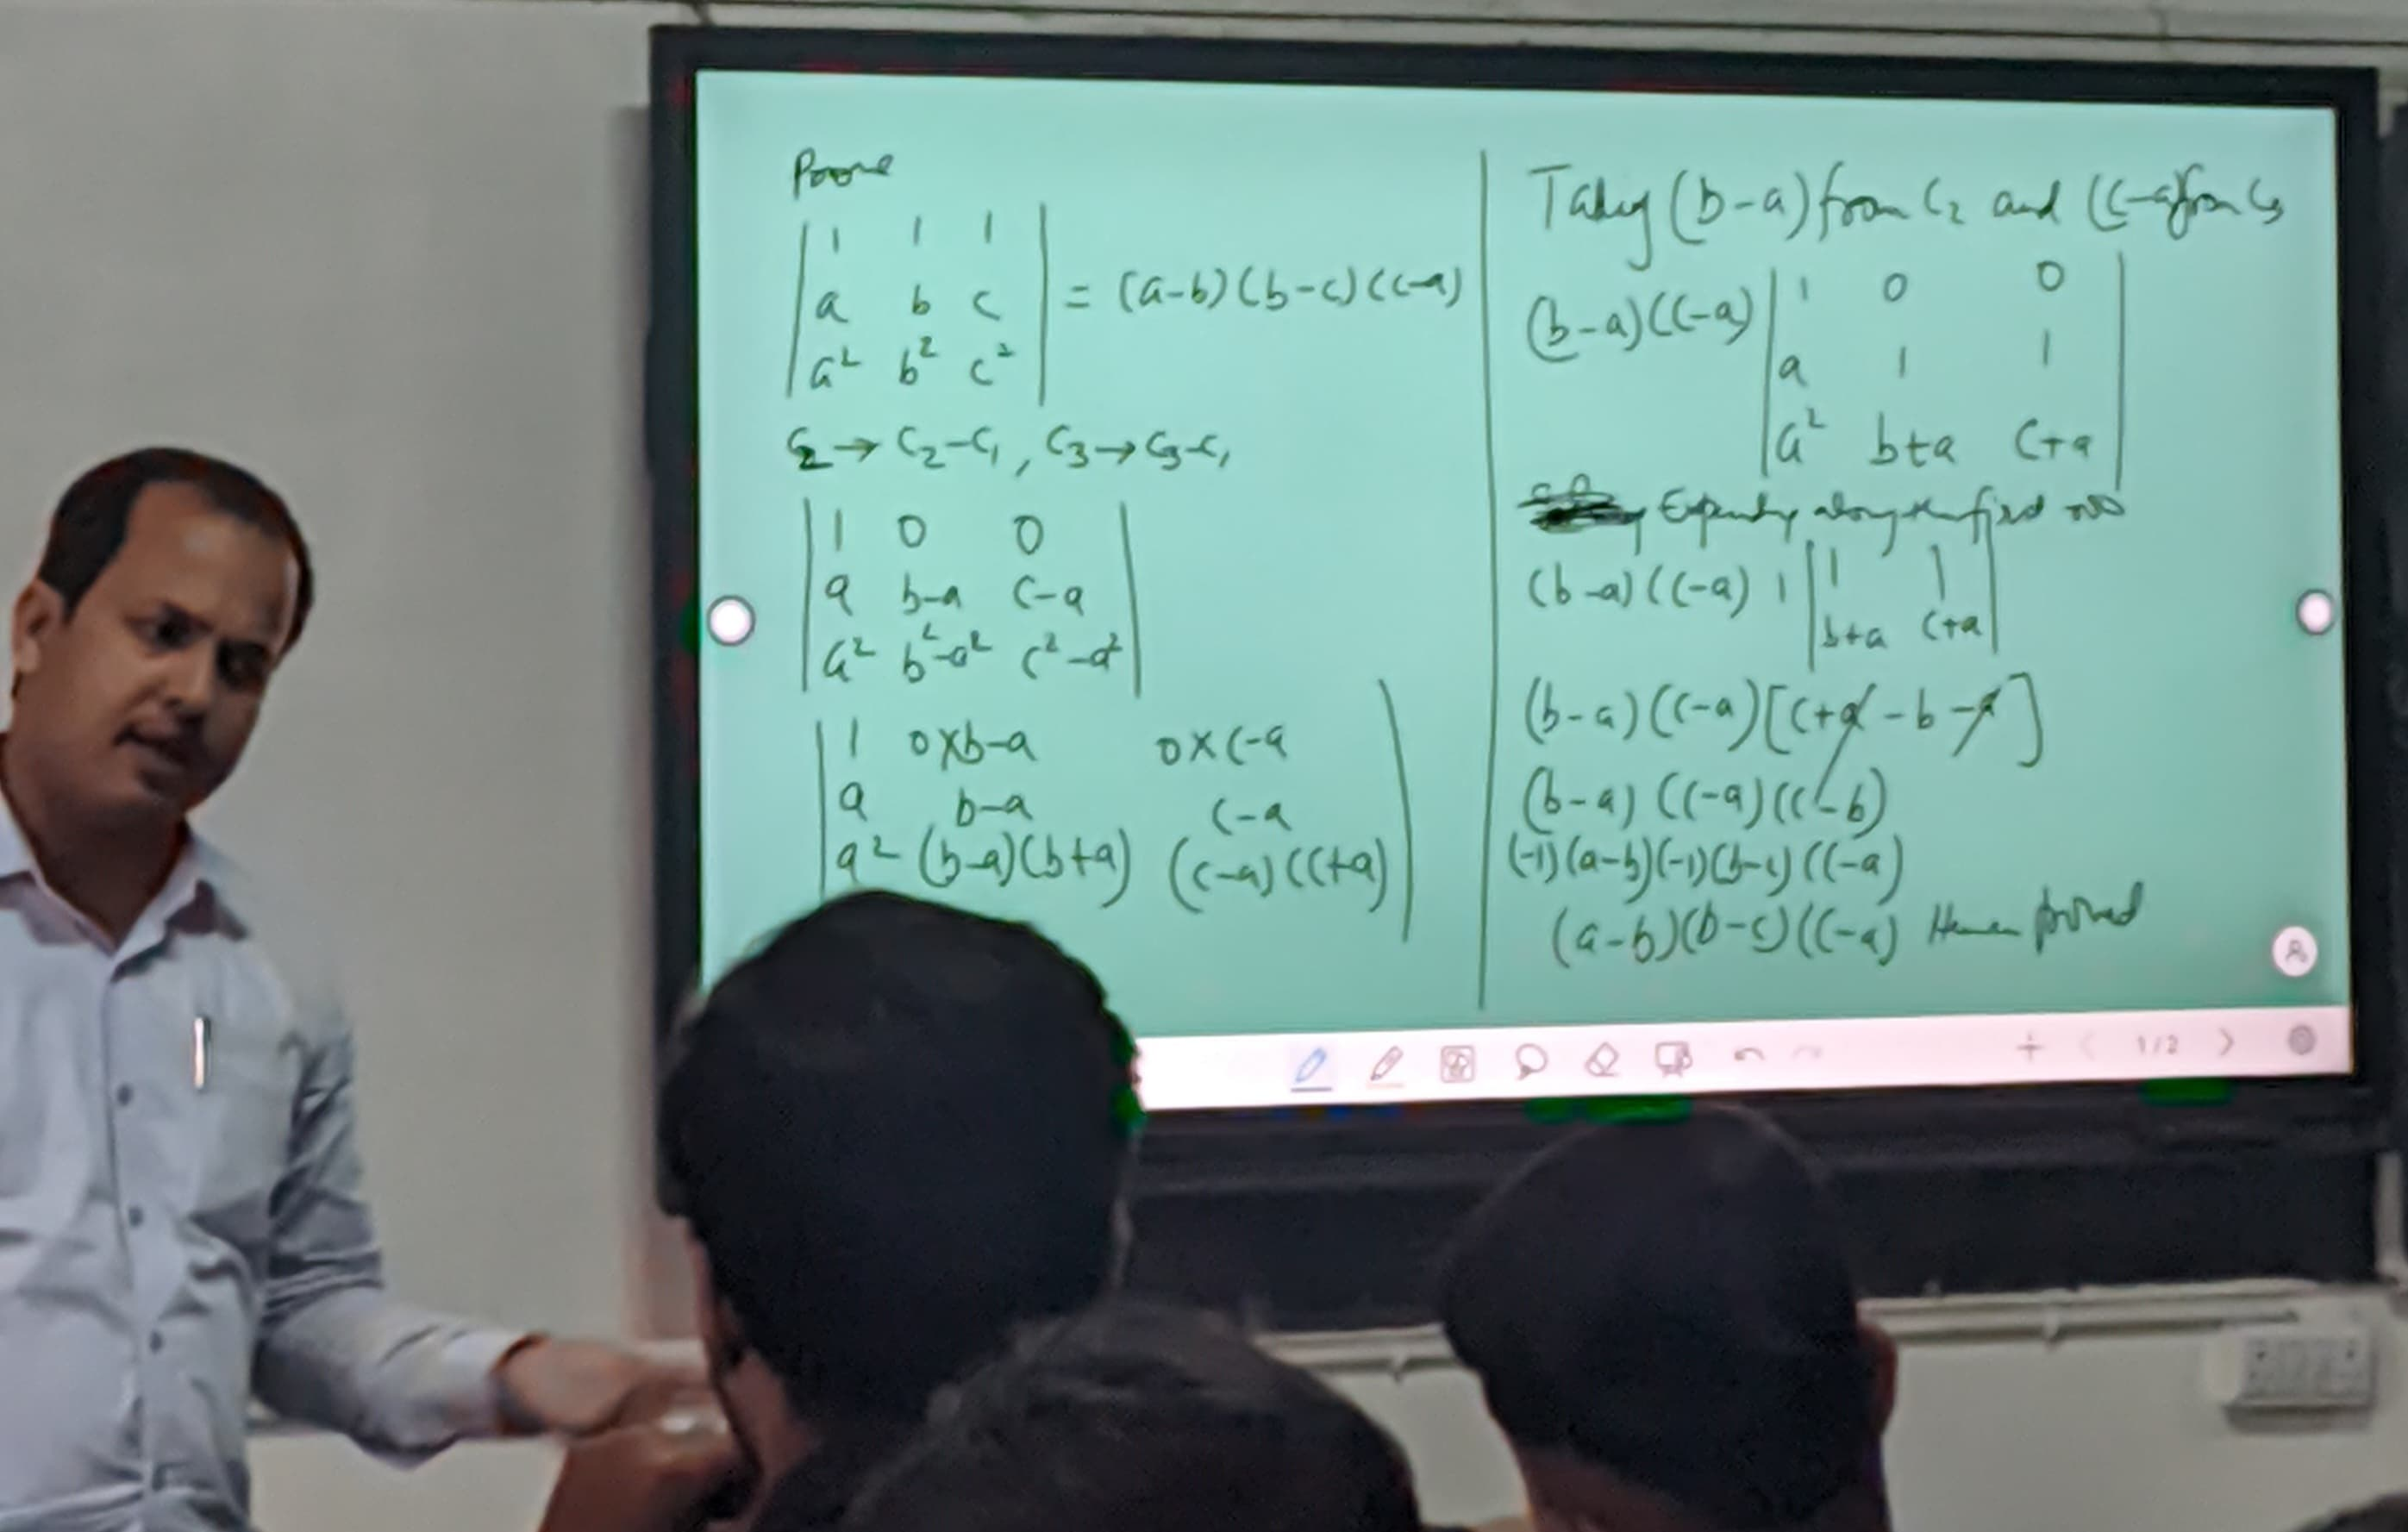 Prove
| 1 1 1 |
| a b c | = (a-b)(b-c)(c-a)
| a² b² c² |
C₂ → C₂-C₁, C₃→C₃-C₁
| 1 0 0 |
| a b-a c-a |
| a² b²-a² c²-a² |
| 1 0×b-a 0×c-a |
| a b-a c-a |
| a² (b-a)(b+a) (c-a)(c+a) |
Taking (b-a) from C₂ and (c-a) from C₃
(b-a)(c-a) | 1 0 0 |
| a 1 1 |
| a² b+a c+a |
Expanding along the first row
(b-a)(c-a) 1 | 1 1 |
| b+a c+a |
(b-a)(c-a)[c+a-b-a]
(b-a)(c-a)(c-b)
(-1)(a-b)(-1)(b-c)(c-a)
(a-b)(b-c)(c-a) Hence proved
1/2